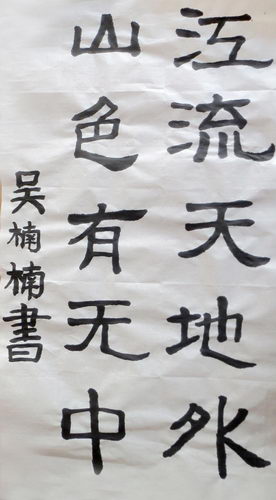 江流天地外
山色有无中
吴楠楠書